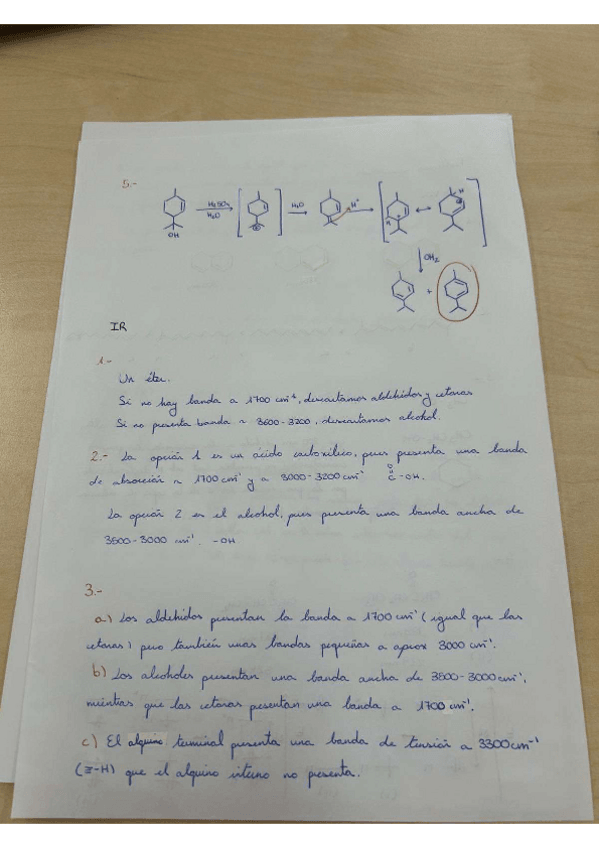 5.-
H₂SO₄
H₂O
H₂O
H⁺
OH
OH₂
+
IR
1.-
Un éter.
Si no hay banda a 1700 cm⁻¹, descartamos aldehidos y cetonas
Si no presenta banda a 3600-3200, descartamos alcohol.
2.- La opción 1 es un ácido carboxílico, pues presenta una banda
de absorción a 1700 cm⁻¹ y a 3000-3200 cm⁻¹ O=C-OH.
La opción 2 es el alcohol, pues presenta una banda ancha de
3500-3000 cm⁻¹. -OH
3.-
a) Los aldehidos presentan la banda a 1700 cm⁻¹ (igual que las
cetonas) pero también unas bandas pequeñas a aprox 3000 cm⁻¹.
b) Los alcoholes presentan una banda ancha de 3500-3000 cm⁻¹,
mientras que las cetonas presentan una banda a 1700 cm⁻¹.
c) El alquino terminal presenta una banda de tensión a 3300 cm⁻¹
(≡-H) que el alquino interno no presenta.